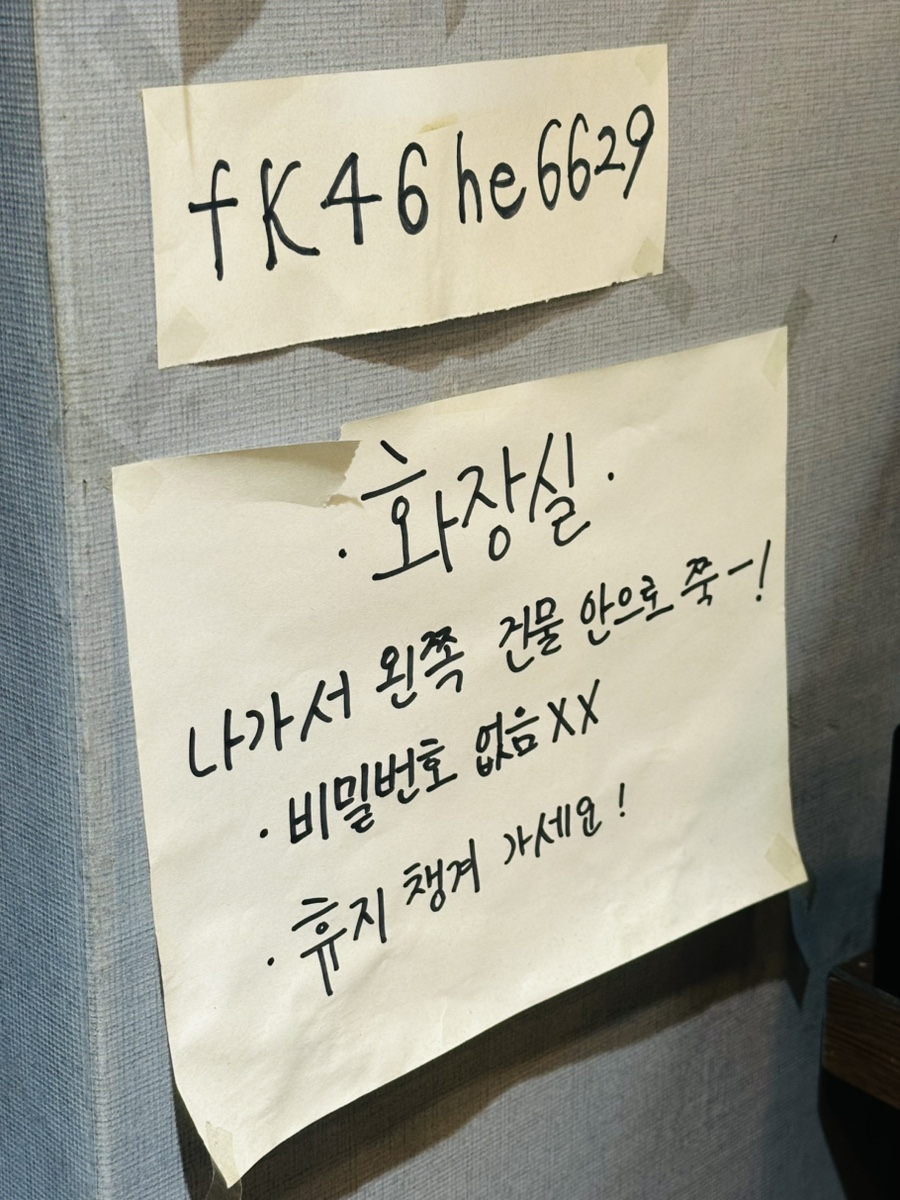 fK46he6629
·화장실·
나가서 왼쪽 건물 안으로 쭉ー!
·비밀번호 없음XX
·휴지 챙겨 가세요!